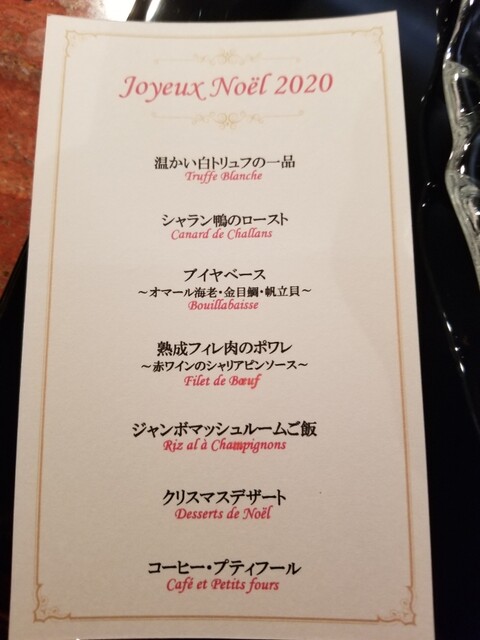 Joyeux Noël 2020
温かい白トリュフの一品
Truffe Blanche
シャラン鴨のロースト
Canard de Challans
ブイヤベース
～オマール海老・金目鯛・帆立貝～
Bouillabaisse
熟成フィレ肉のポワレ
～赤ワインのシャリアピンソース～
Filet de Bœuf
ジャンボマッシュルームご飯
Riz al à Champignons
クリスマスデザート
Desserts de Noël
コーヒー・プティフール
Café et Petits fours